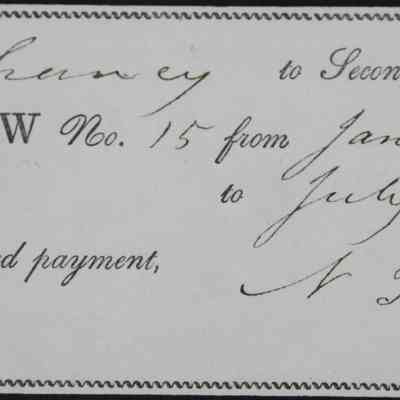 to Secon
W No. 15 from Jan
to July
d payment,
N